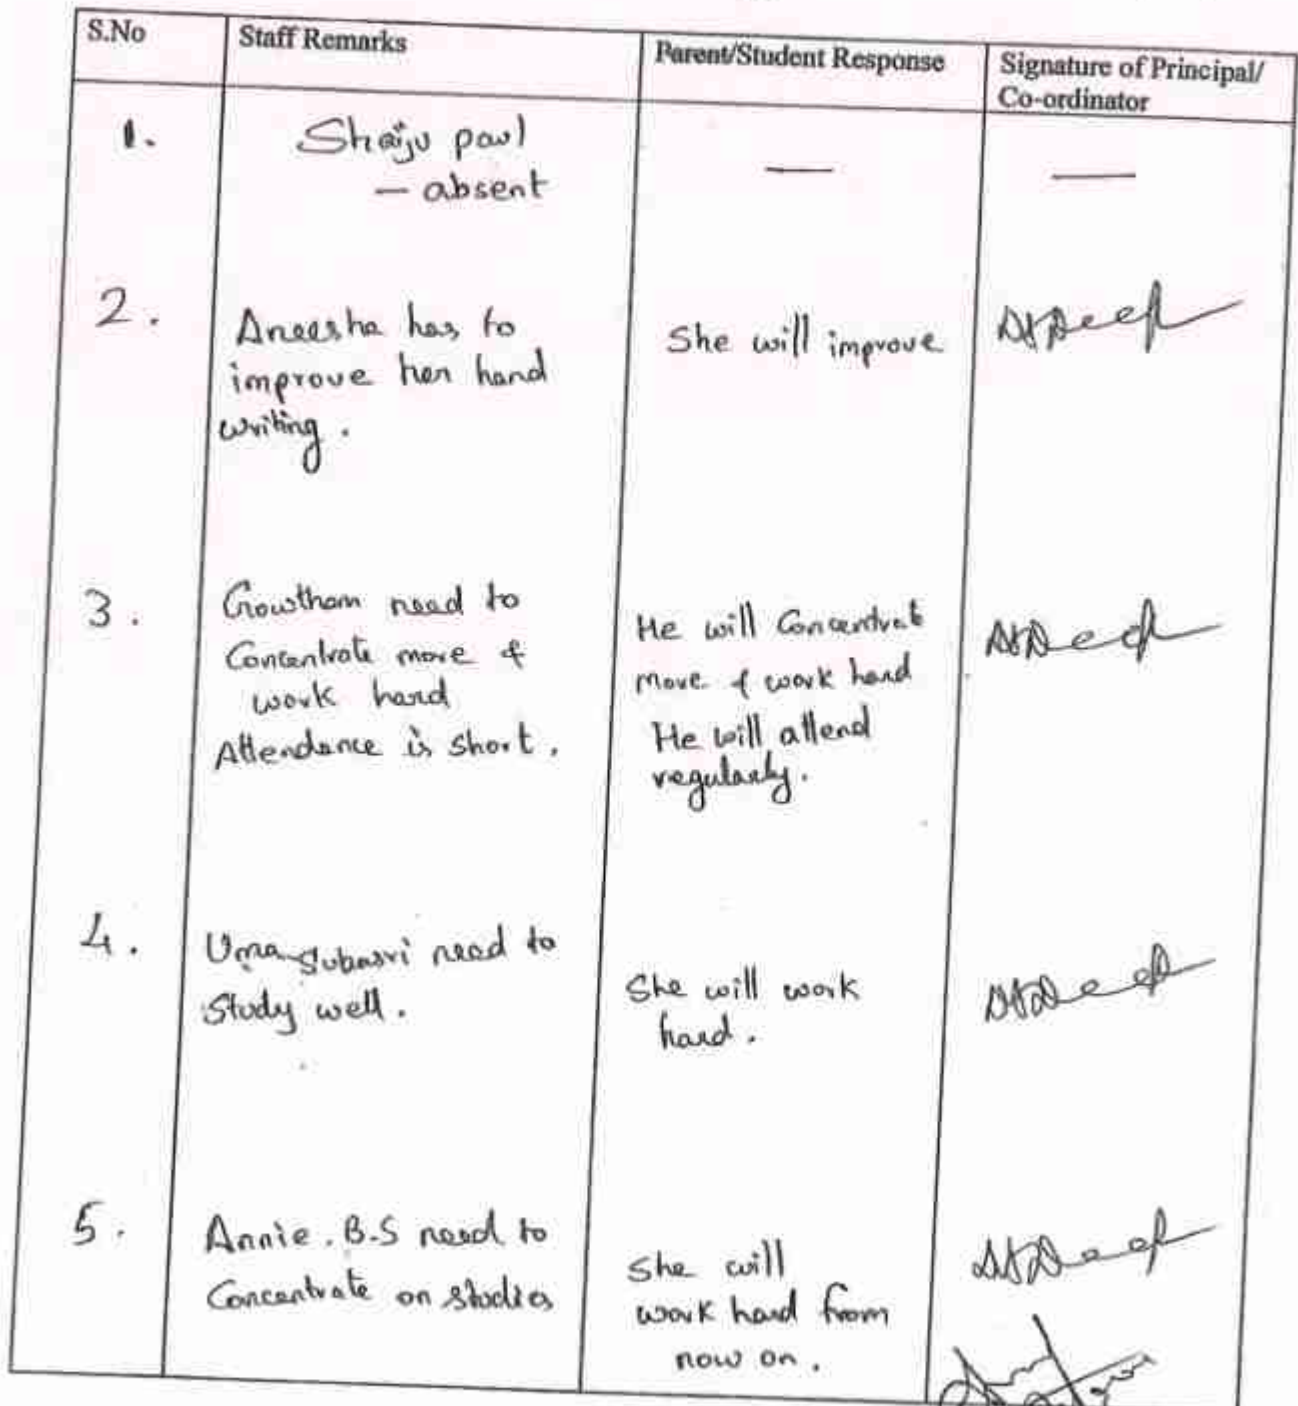 S.No
Staff Remarks
Parent/Student Response
Signature of Principal/
Co-ordinator
1.
Shaiju paul
- absent
—
—
2.
Aneesha has to
improve her hand
writing.
She will improve
3.
Gowtham need to
Concentrate more &
work hard
Attendance is short.
He will Concentrate
more & work hard
He will attend
regularly.
4.
Uma Subasri need to
Study well.
She will work
hard.
5.
Annie. B.S need to
Concentrate on studies
She will
work hard from
now on.